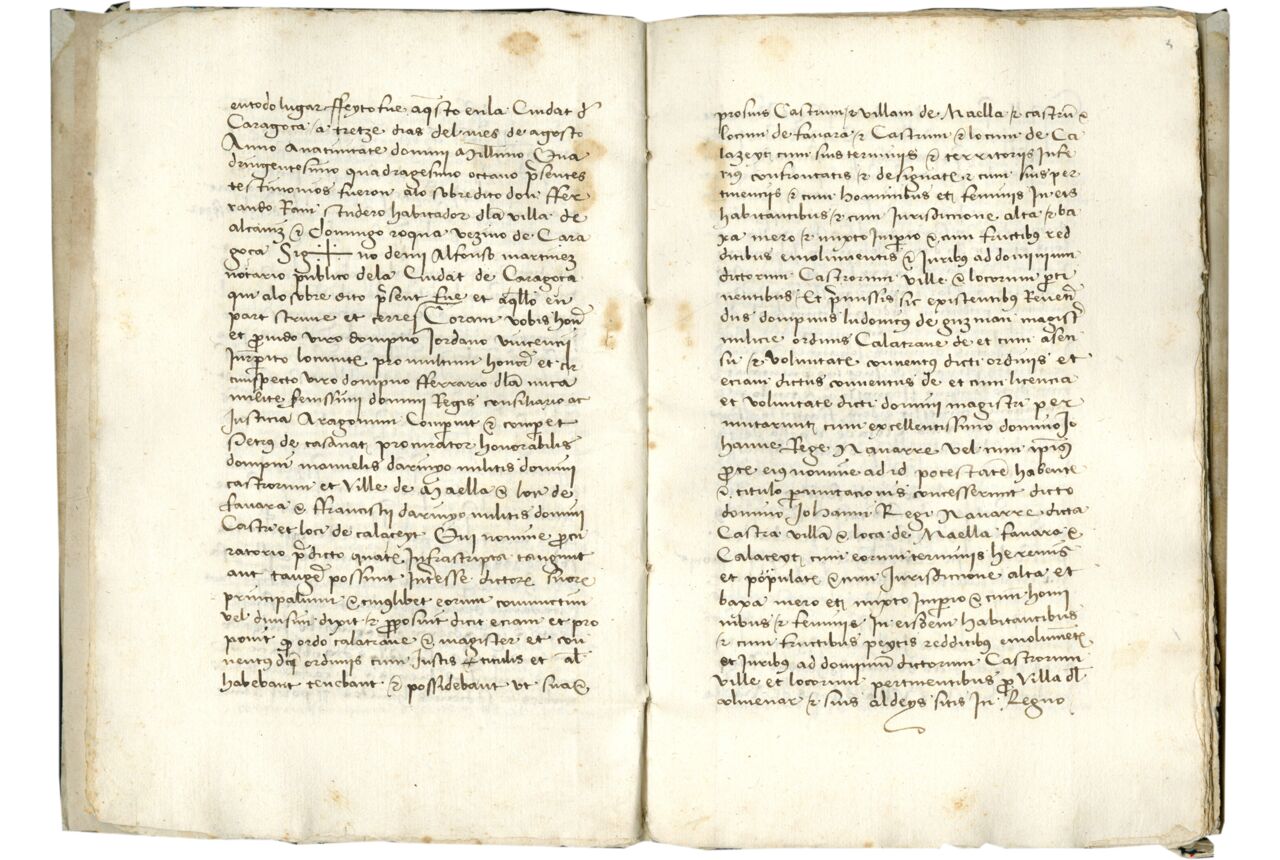 en todo lugar ffeyto fue aq̃sto en la Ciudat d̃
Caragoca a tretze dias del mes de agosto
Anno anatiuitate domini Millimo Qua
dringentesimo quadragesimo octauo p̃sentes
testimonios fueron alo sobredito don ffer
rando Ram scudero habitador dla villa de
alcaniz & Domingo roqua vezino de Cara
goca Sig + no de mi Alfonso martinez
notario publico dela Ciudat de Caragoca
qui alo sobre dito p̃sent fue et aq̃llo en
part scriuie et cerre Coram vobis hoñ
et ꝓuido viro dompno Jordano vincencii
Jurp̃ito locumteñ pro multum honoꝝ et cir
cunspecto viro dompno fferrario dla nuca
milite serenissimi domini Regis consiliario ac
Justicia Aragonum Comparuit & comperet
Petrus de casanat procurator honorabilis
dompni manuelis darinyo militis domini
castrorum et Ville de Maella & loci de
fauara & ffrancisci darinyo militis domini
Castri et loci de calaceyt Qui nomine procu
ratorio p̃dicto quateñ Infrascripta tangunt
aut tang̃e possunt Interesse dictoꝝ suoꝝ
principalium & cuiuslibet eorum coniunctim
vel diuisim dixit & ꝓposuit dicit eciam et pro
ponit ꝙ ordo calatraue & magister et con
uentus dicti ordinis cum Justis titulis et al̃
habebant tenebant & possidebant vt sua &
3
prosuis Castrum & villam de Maella & castrũ &
locum de fauara & Castrum & locum de Ca
lazeyt cum suis terminis & territoriis Infe
rius confrontatis & designatis & cum suis per
tinenciis & cum hominibus et feminis In eis
habitantibus & cum Jurisdicione alta & ba
xa mero & mixto Imperio & cum fructibus red
ditibus emolumentis & Juribus ad dominium
dictorum Castrorum ville & locorum ꝑti
nentibus Et p̃missis sic existentibus Reueren
dus dompnus ludouicus de guzman magist̃
milicie ordinis Calatraue de et cum assen
su & voluntate conuentus dicti ordinis et
eciam dictus conuentus de et cum licencia
et voluntate dicti domini magistri per
mutarunt cum excellentissimo domino Jo
hanne Rege Nauarre vel cum ipsius
ꝓcre eius nomine ad id potestatem habente
& titulo permutacionis concesserunt dicto
domino Johanni Regi Nauarre dicta
Castra villã & loca de Maella fauara &
Calaceyt cum eorum terminis heremis
et populatis & cum Jurisdicione alta et
baxa mero et mixto Imperio & cum homi
nibus & feminis In eisdem habitantibus
& cum fructibus peytis redditibus emolumetis
et Juribus ad dominiũ dictorum Castrorum
ville et locorum pertinentibus ꝓ Villa d̃l
colmenar & suis aldeys sitis In Regno